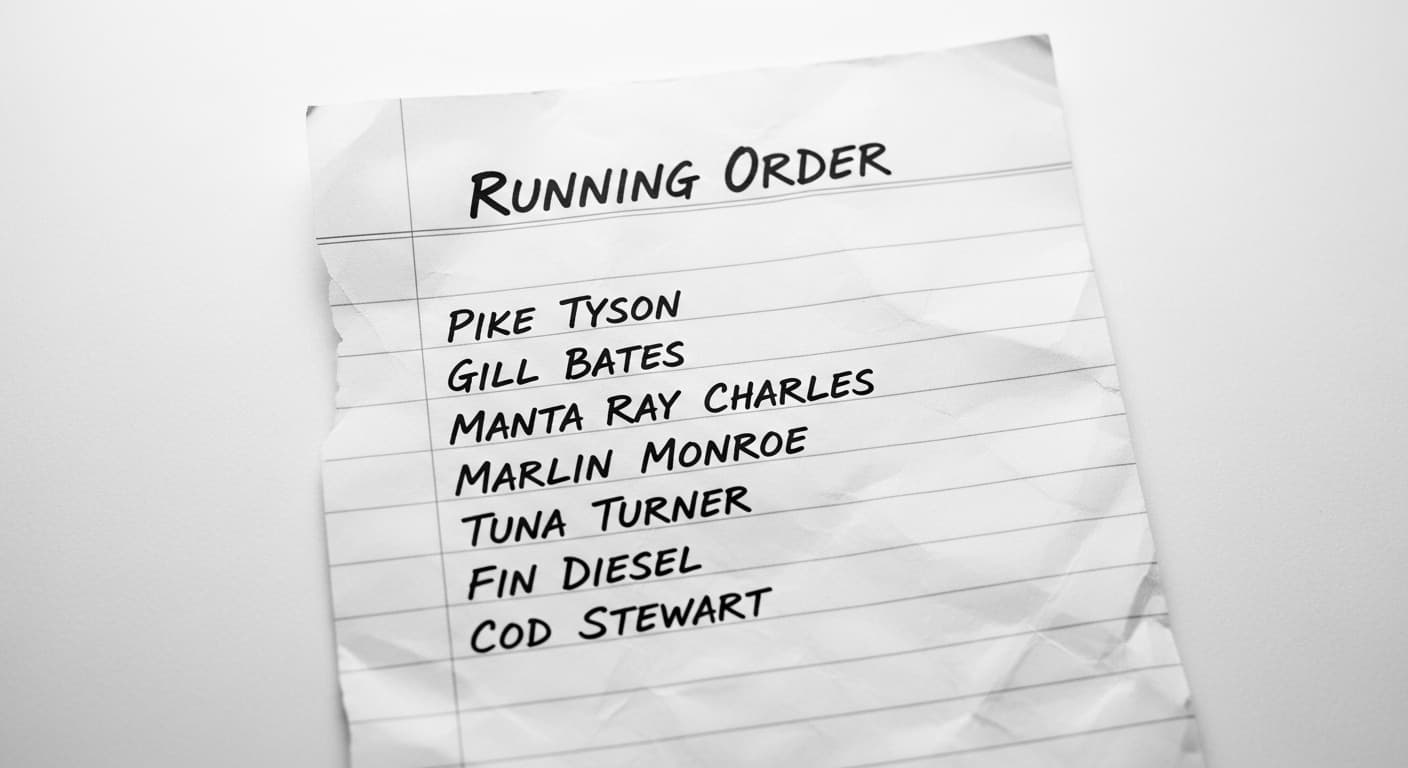 RUNNING ORDER
PIKE TYSON
GILL BATES
MANTA RAY CHARLES
MARLIN MONROE
TUNA TURNER
FIN DIESEL
COD STEWART